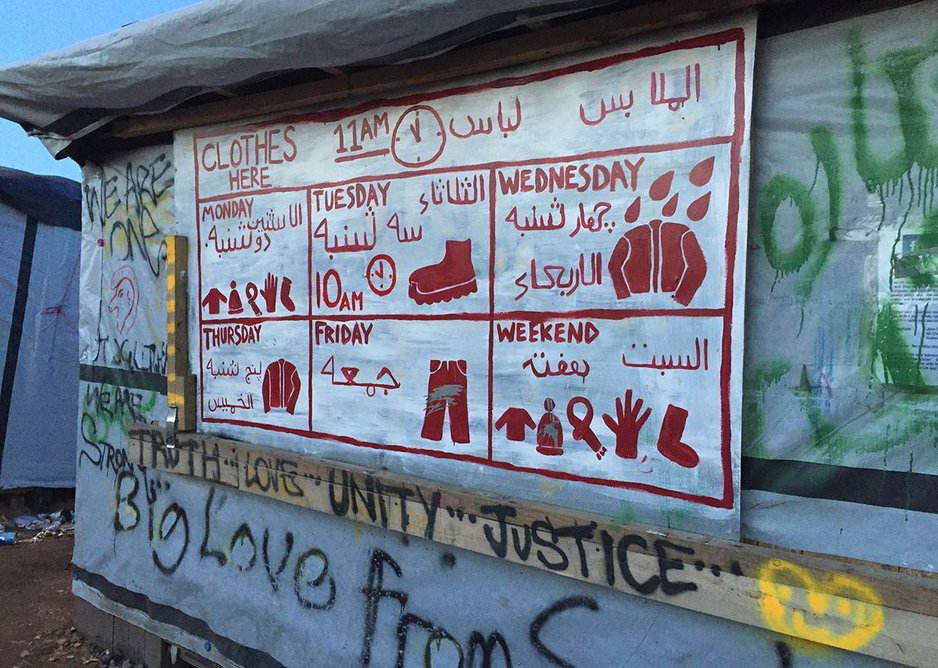 CLOTHES HERE 11AM لباس الملابس
MONDAY
الاثنين
دوشنبه
TUESDAY الثلاثاء
سه شنبه
10AM
WEDNESDAY
چهارشنبه
الاربعاء
THURSDAY
پنج شنبه
الخميس
FRIDAY
جمعه
WEEKEND
السبت
هفته
WE ARE
ONE
WE ARE
STRONG
TRUTH... LOVE... UNITY... JUSTICE...
Big Love from